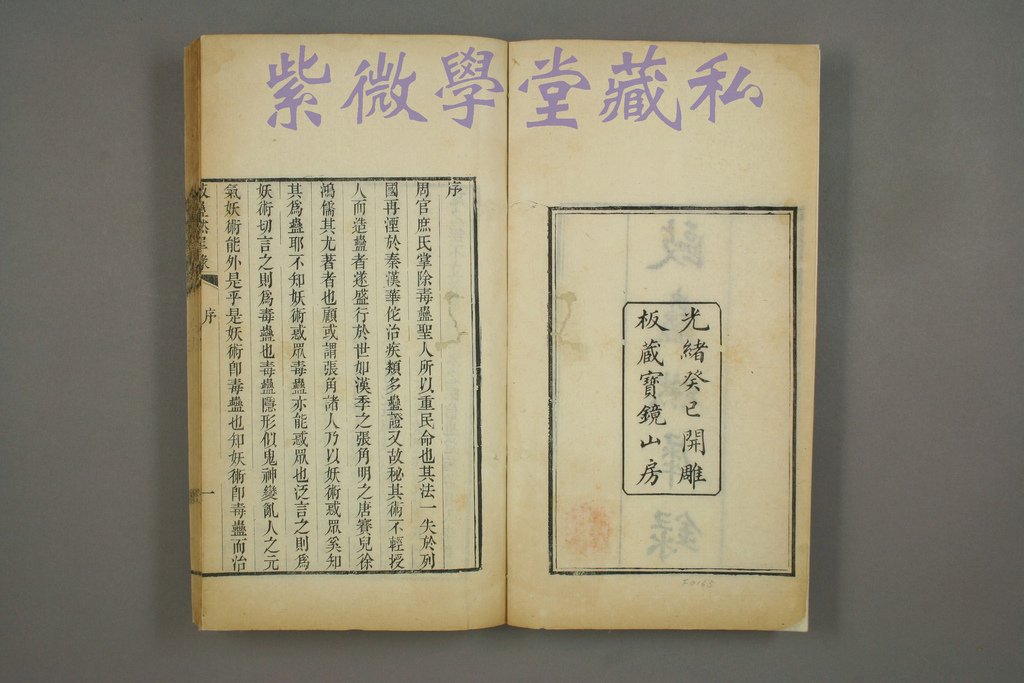 紫微學堂藏私
光緒癸巳開雕
板藏寶鏡山房
序
周官庶氏掌除毒蠱聖人所以重民命也其法一失於列
國再湮於秦漢華佗治疾類多蠱證又故秘其術不輕授
人而造蠱者遂盛行於世如漢季之張角明之唐賽兒徐
鴻儒其尤著者也顧或謂張角諸人乃以妖術惑眾奚知
其爲蠱耶不知妖術惑眾毒蠱亦能惑眾也泛言之則爲
妖術切言之則爲毒蠱也毒蠱隱形似鬼神變亂人之元
氣妖術能外是乎是妖術卽毒蠱也知妖術卽毒蠱而治
序
一